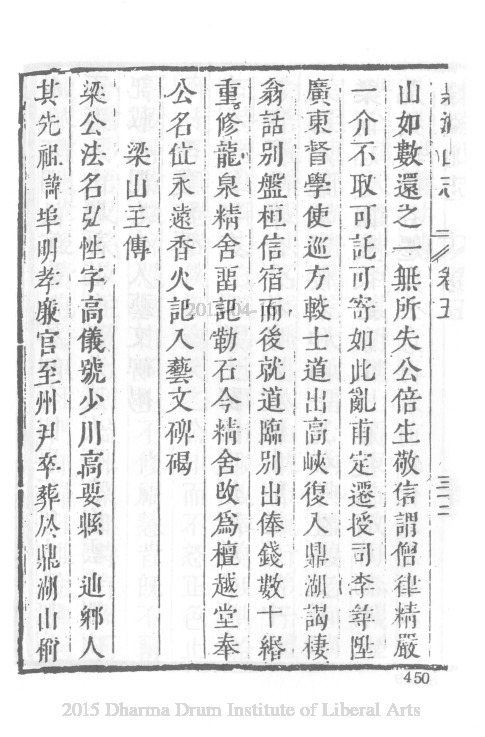 鼎湖山志 卷五 三十二
山如數還之一無所失公倍生敬信謂僧律精嚴
一介不取可託可寄如此亂甫定遷授司李尋陞
廣東督學使巡方較士道出高峽復入鼎湖謁棲
翁話別盤桓信宿而後就道臨別出俸錢數十緡
重修龍泉精舍畱記勒石今精舍改為檀越堂奉
公名位永遠香火記入藝文碑碣
梁山主傳
梁公法名弘性字高儀號少川高要縣 迪鄉人
其先祖諱埠明孝廉官至州尹卒葬於鼎湖山
450
2015 Dharma Drum Institute of Liberal Arts